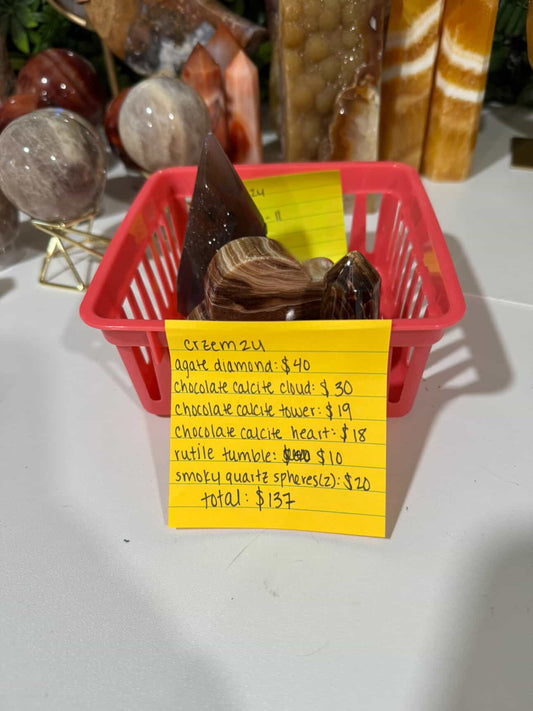 24
- 11
crzem24
agate diamond: $40
chocolate calcite cloud: $30
chocolate calcite tower: $19
chocolate calcite heart: $18
rutile tumble: $10
smoky quartz spheres(2): $20
total: $137